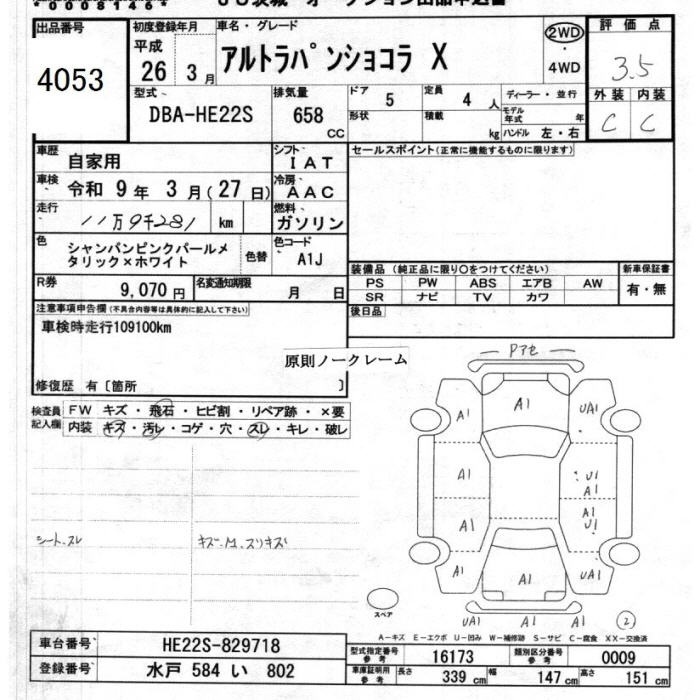 出品番号
4053
初度登録年月
平成
26 3月
車名・グレード
アルトラパンショコラ X
2WD
4WD
評価点
3.5
外装 内装
C C
型式
DBA-HE22S
排気量
658
CC
ドア 5
形状
定員 4 人
積載 kg
ディーラー・並行
モデル年式 年
ハンドル 左・右
車歴 自家用
シフト IAT
車検 令和 9年 3月(27日)
冷房 AAC
走行 11万9千281 km
燃料 ガソリン
色 シャンパンピンクパールメタリック×ホワイト
色替
色コード A1J
R券 9,070 円
名変通知期限 月 日
セールスポイント(正常に機能するものに限ります)
装備品(純正品に限り○をつけてください)
PS PW ABS エアB AW
SR ナビ TV カワ
新車保証書
有・無
後日品
注意事項申告欄(不具合内容等は具体的に記入して下さい)
車検時走行109100km
原則ノークレーム
修復歴 有〔箇所 〕
検査員記入欄
FW キズ・飛石・ヒビ割・リペア跡・×要
内装 キズ・汚レ・コゲ・穴・スレ・キレ・破レ
シート.スレ
キズ.M.スリキズ
Pアセ
A1 A1 UA1
A1 U1
A1
A1 A1
U1
A1 A1 UA1
UA1 A1 2
スペア
A-キズ E-エクボ U-凹み W-補修跡 S-サビ C-腐食 XX-交換済
車台番号 HE22S-829718
登録番号 水戸 584 い 802
型式指定番号 参考 16173
類別区分番号 参考 0009
車庫証明用 参考 長さ 339 cm 幅 147 cm 高さ 151 cm